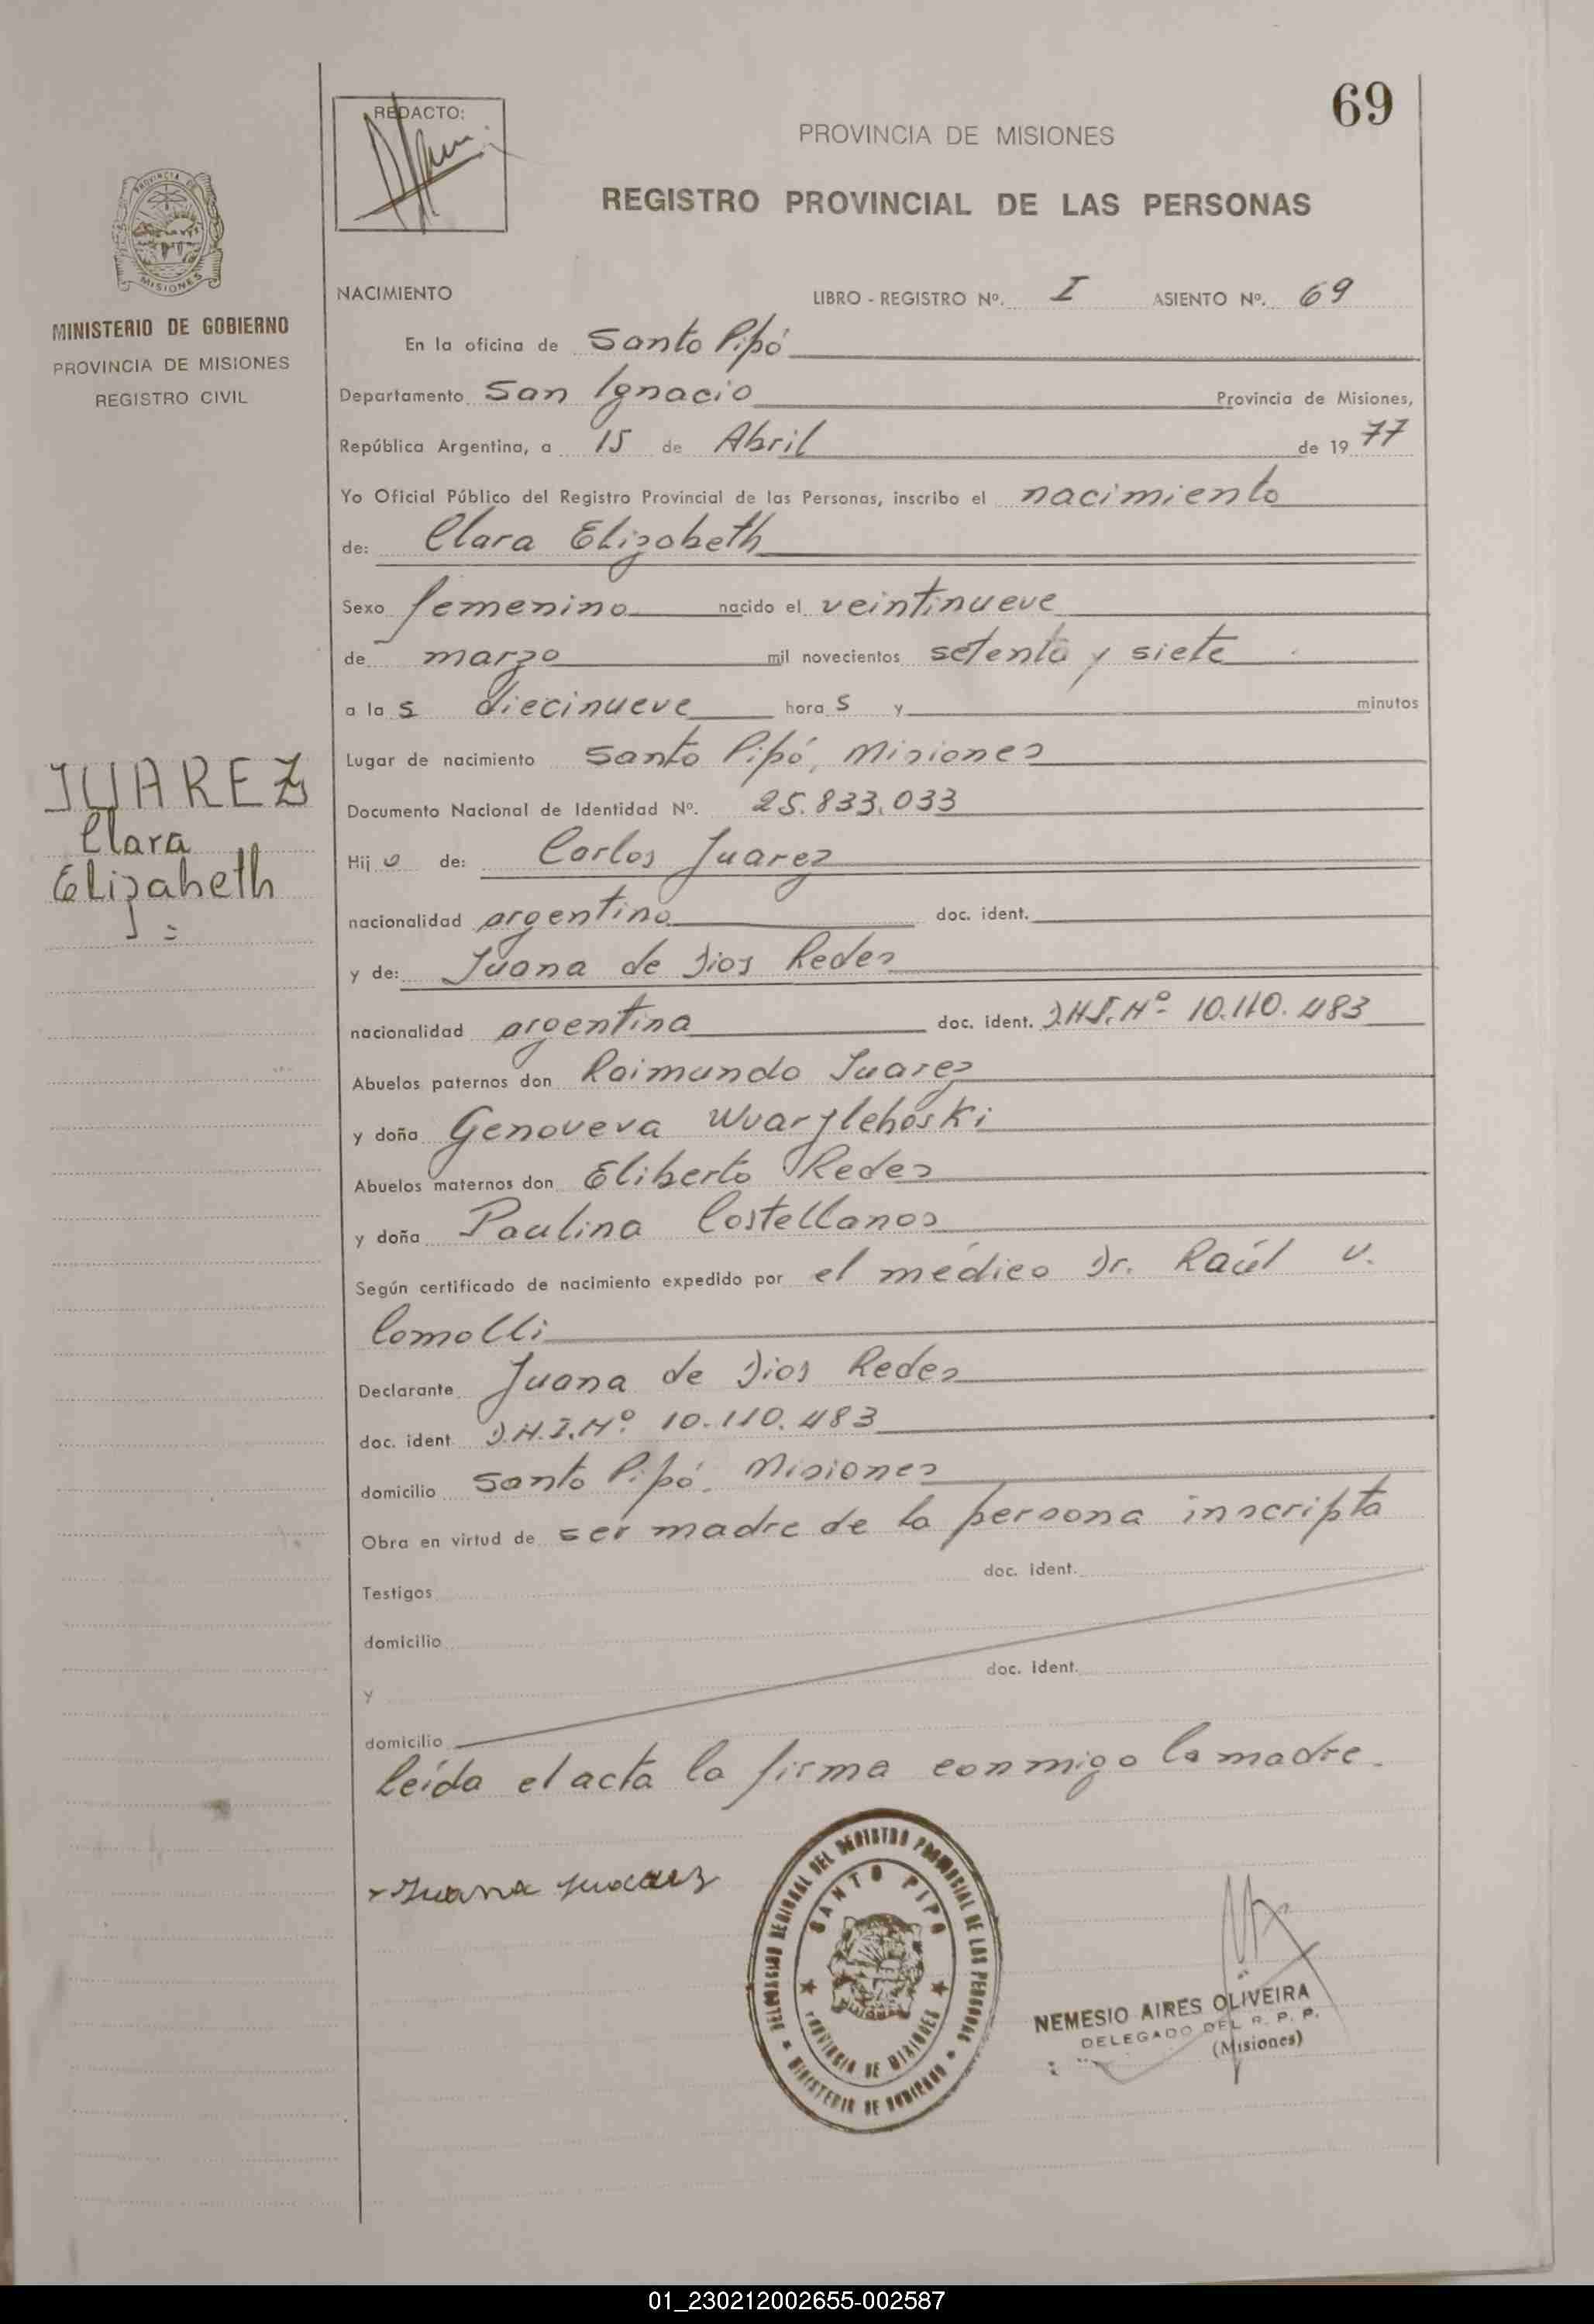 69
REDACTO:
PROVINCIA DE MISIONES
REGISTRO PROVINCIAL DE LAS PERSONAS
PROVINCIA DE
MISIONES
MINISTERIO DE GOBIERNO
PROVINCIA DE MISIONES
REGISTRO CIVIL
NACIMIENTO LIBRO - REGISTRO Nº. I ASIENTO Nº. 69
En la oficina de Santo Pipó
Departamento San Ignacio Provincia de Misiones,
República Argentina, a 15 de Abril de 1977
Yo Oficial Público del Registro Provincial de las Personas, inscribo el nacimiento
de: Clara Elizabeth
Sexo femenino nacido el veintinueve
de marzo mil novecientos setenta y siete
a las diecinueve horas y minutos
Lugar de nacimiento Santo Pipó, Misiones
Documento Nacional de Identidad Nº. 25.833.033
JUAREZ
Clara
Elizabeth
Hija de: Carlos Juarez
nacionalidad argentino doc. ident.
y de: Juana de Dios Redes
nacionalidad argentina doc. ident. D.N.I. Nº 10.110.483
Abuelos paternos don Raimundo Juarez
y doña Genoveva
Abuelos maternos don Eliberto Redes
y doña Paulina Castellanos
Según certificado de nacimiento expedido por el médico Dr. Raúl V.
Comolli
Declarante Juana de Dios Redes
doc. ident. D.N.I. Nº 10.110.483
domicilio Santo Pipó, Misiones
Obra en virtud de ser madre de la persona inscripta
doc. ident.
Testigos
domicilio
doc. ident.
y
domicilio
leída el acta la firma conmigo la madre.
Juana Juarez
DELEGACION REGIONAL DEL REGISTRO PROVINCIAL DE LAS PERSONAS
SANTO PIPO
PROVINCIA DE MISIONES
MINISTERIO DE GOBIERNO
NEMESIO AIRES OLIVEIRA
DELEGADO DEL R. P. P.
(Misiones)
01_230212002655-002587